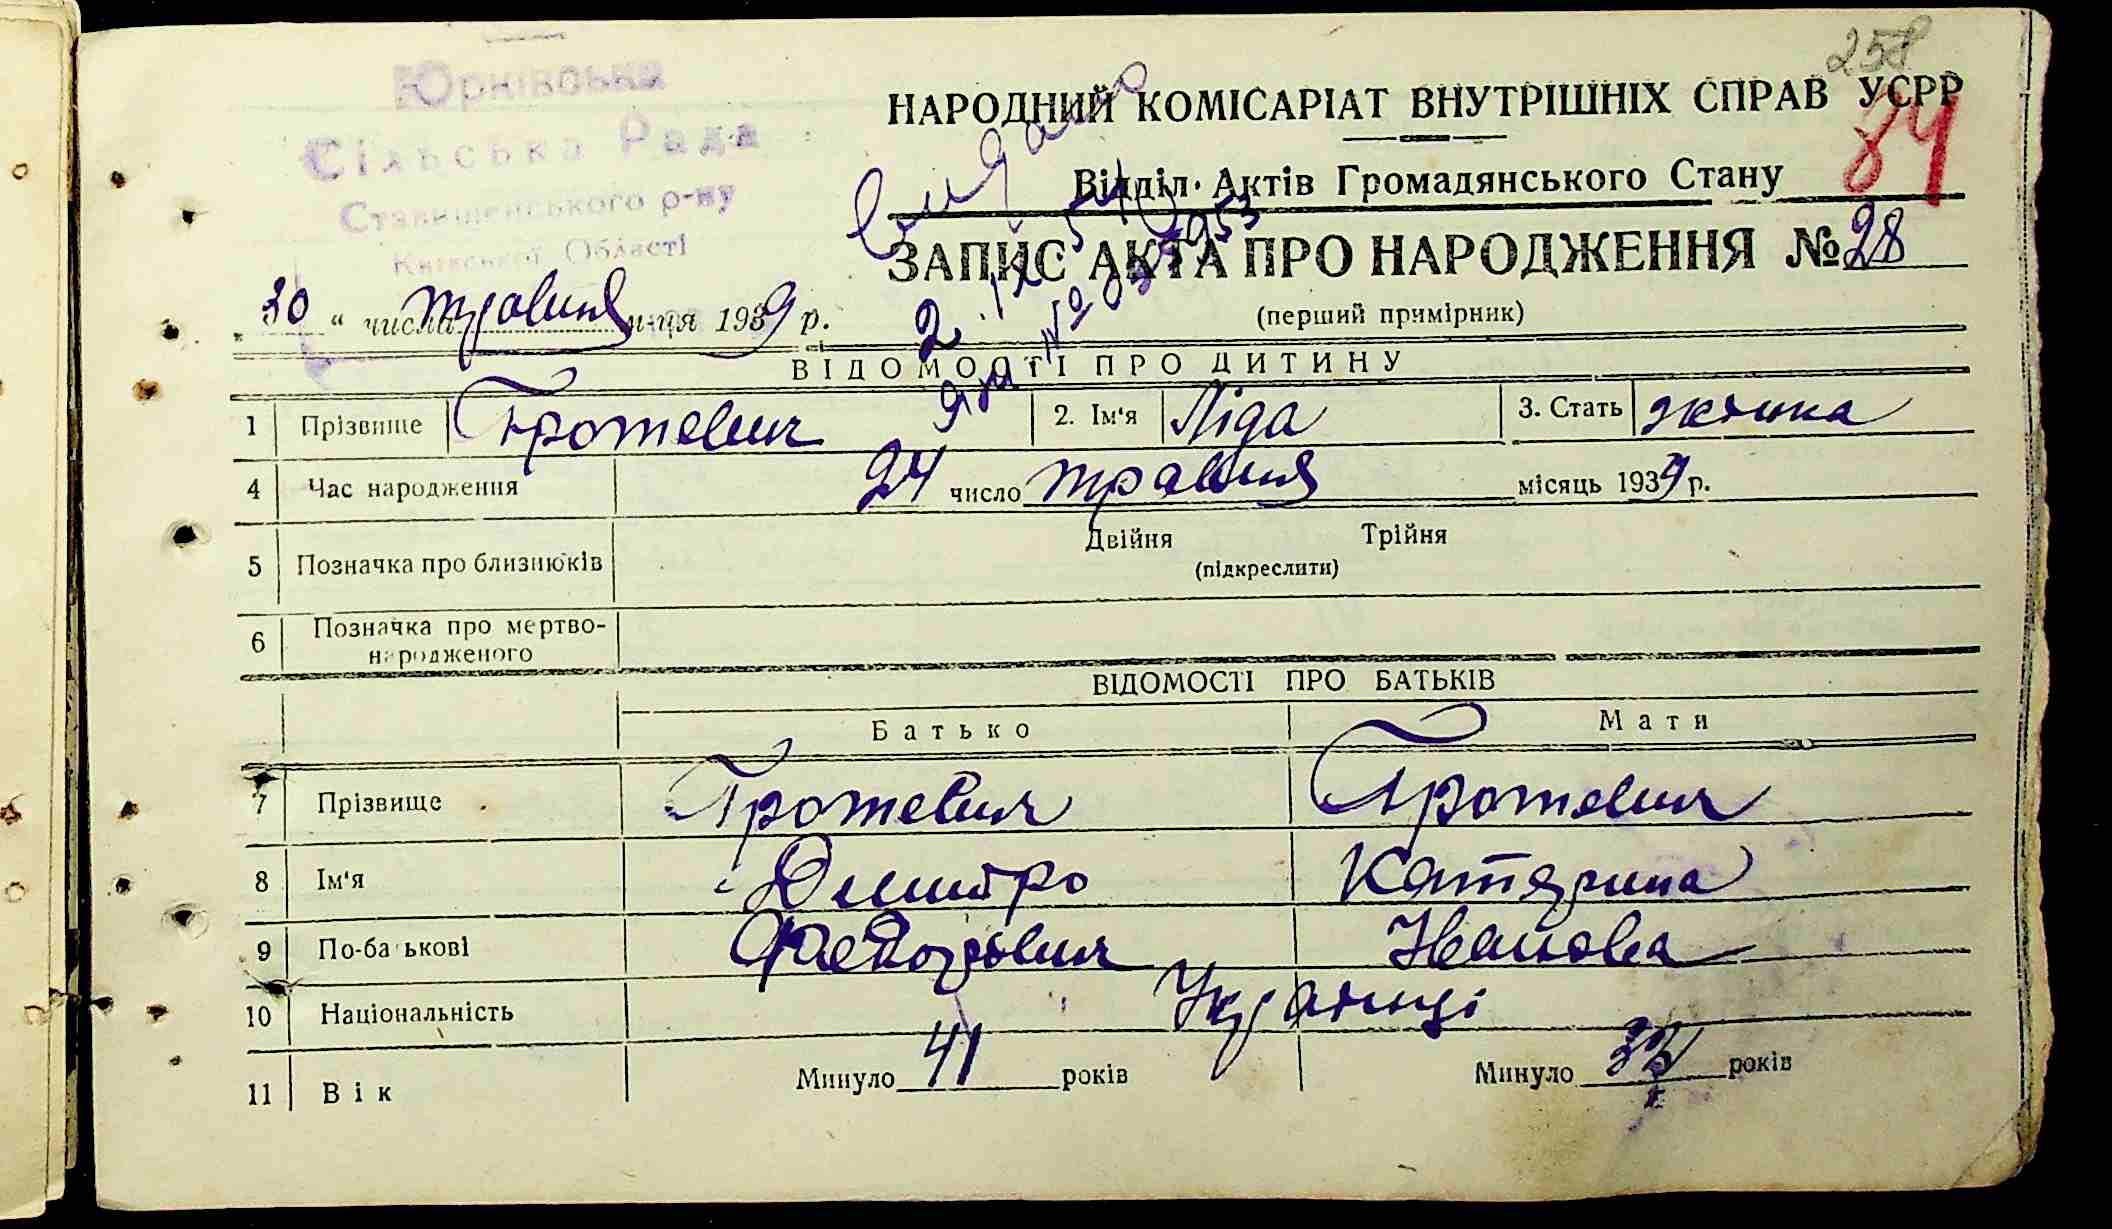 258
Юрківська
Сільська Рада
Ставищенського р-ну
Київської Області
НАРОДНИЙ КОМІСАРІАТ ВНУТРІШНІХ СПРАВ УСРР
84
Відділ Актів Громадянського Стану
видано
ЗАПИС АКТА ПРО НАРОДЖЕННЯ № 28
(перший примірник)
„ 30 “ числа травня м-ця 1939 р.
ВІДОМОСТІ ПРО ДИТИНУ
1 Прізвище Гротевич 2. Ім'я Ліда 3. Стать жіноча
4 Час народження 24 число травня місяць 1939 р.
5 Позначка про близнюків Двійня Трійня
(підкреслити)
6 Позначка про мертво-
народженого
ВІДОМОСТІ ПРО БАТЬКІВ
Батько Мати
7 Прізвище Гротевич Гротевич
8 Ім'я Дмитро Катерина
9 По-батькові Федорович Іванова
10 Національність Українці
11 Вік Минуло 41 років Минуло років